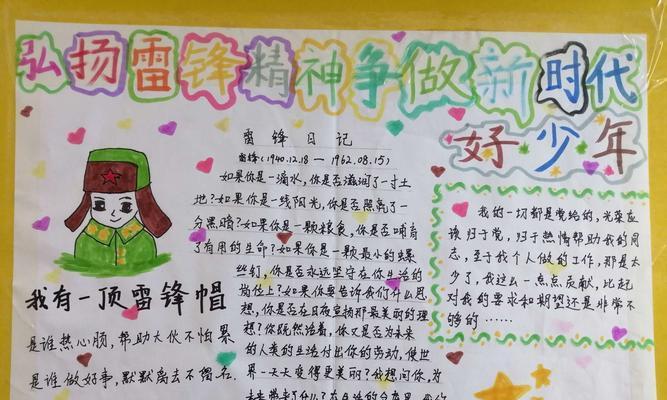 弘扬雷锋精神争做新时代
好少年
雷锋日记
雷锋(1940.12.18—1962.08.15)
如果你是一滴水,你是否滋润了一寸土
地?如果你是一线阳光,你是否照亮了一
分黑暗?如果你是一颗粮食,你是否哺育
了有用的生命?如果你是一颗最小的螺
丝钉,你是否永远坚守在你生活的
岗位上?如果你要告诉我们什么思
想,你是否在日夜宣扬那最美丽的理
想?你既然活着,你又是否为未来
的人类的生活付出你的劳动,使世
界一天天变得更美丽?我想问你,为
未来带来了什么?在生活的仓库里,我们
我有一顶雷锋帽
是谁热心肠,帮助大伙不怕累
是谁做好事,默默离去不留名.
我的一切都是党给的,光荣应
该归于党,归于热情帮助我的同
志,至于我个人做的工作,那是太
少了,我这么一点点贡献,比起
对我的要求和期望还是非常不
够的……